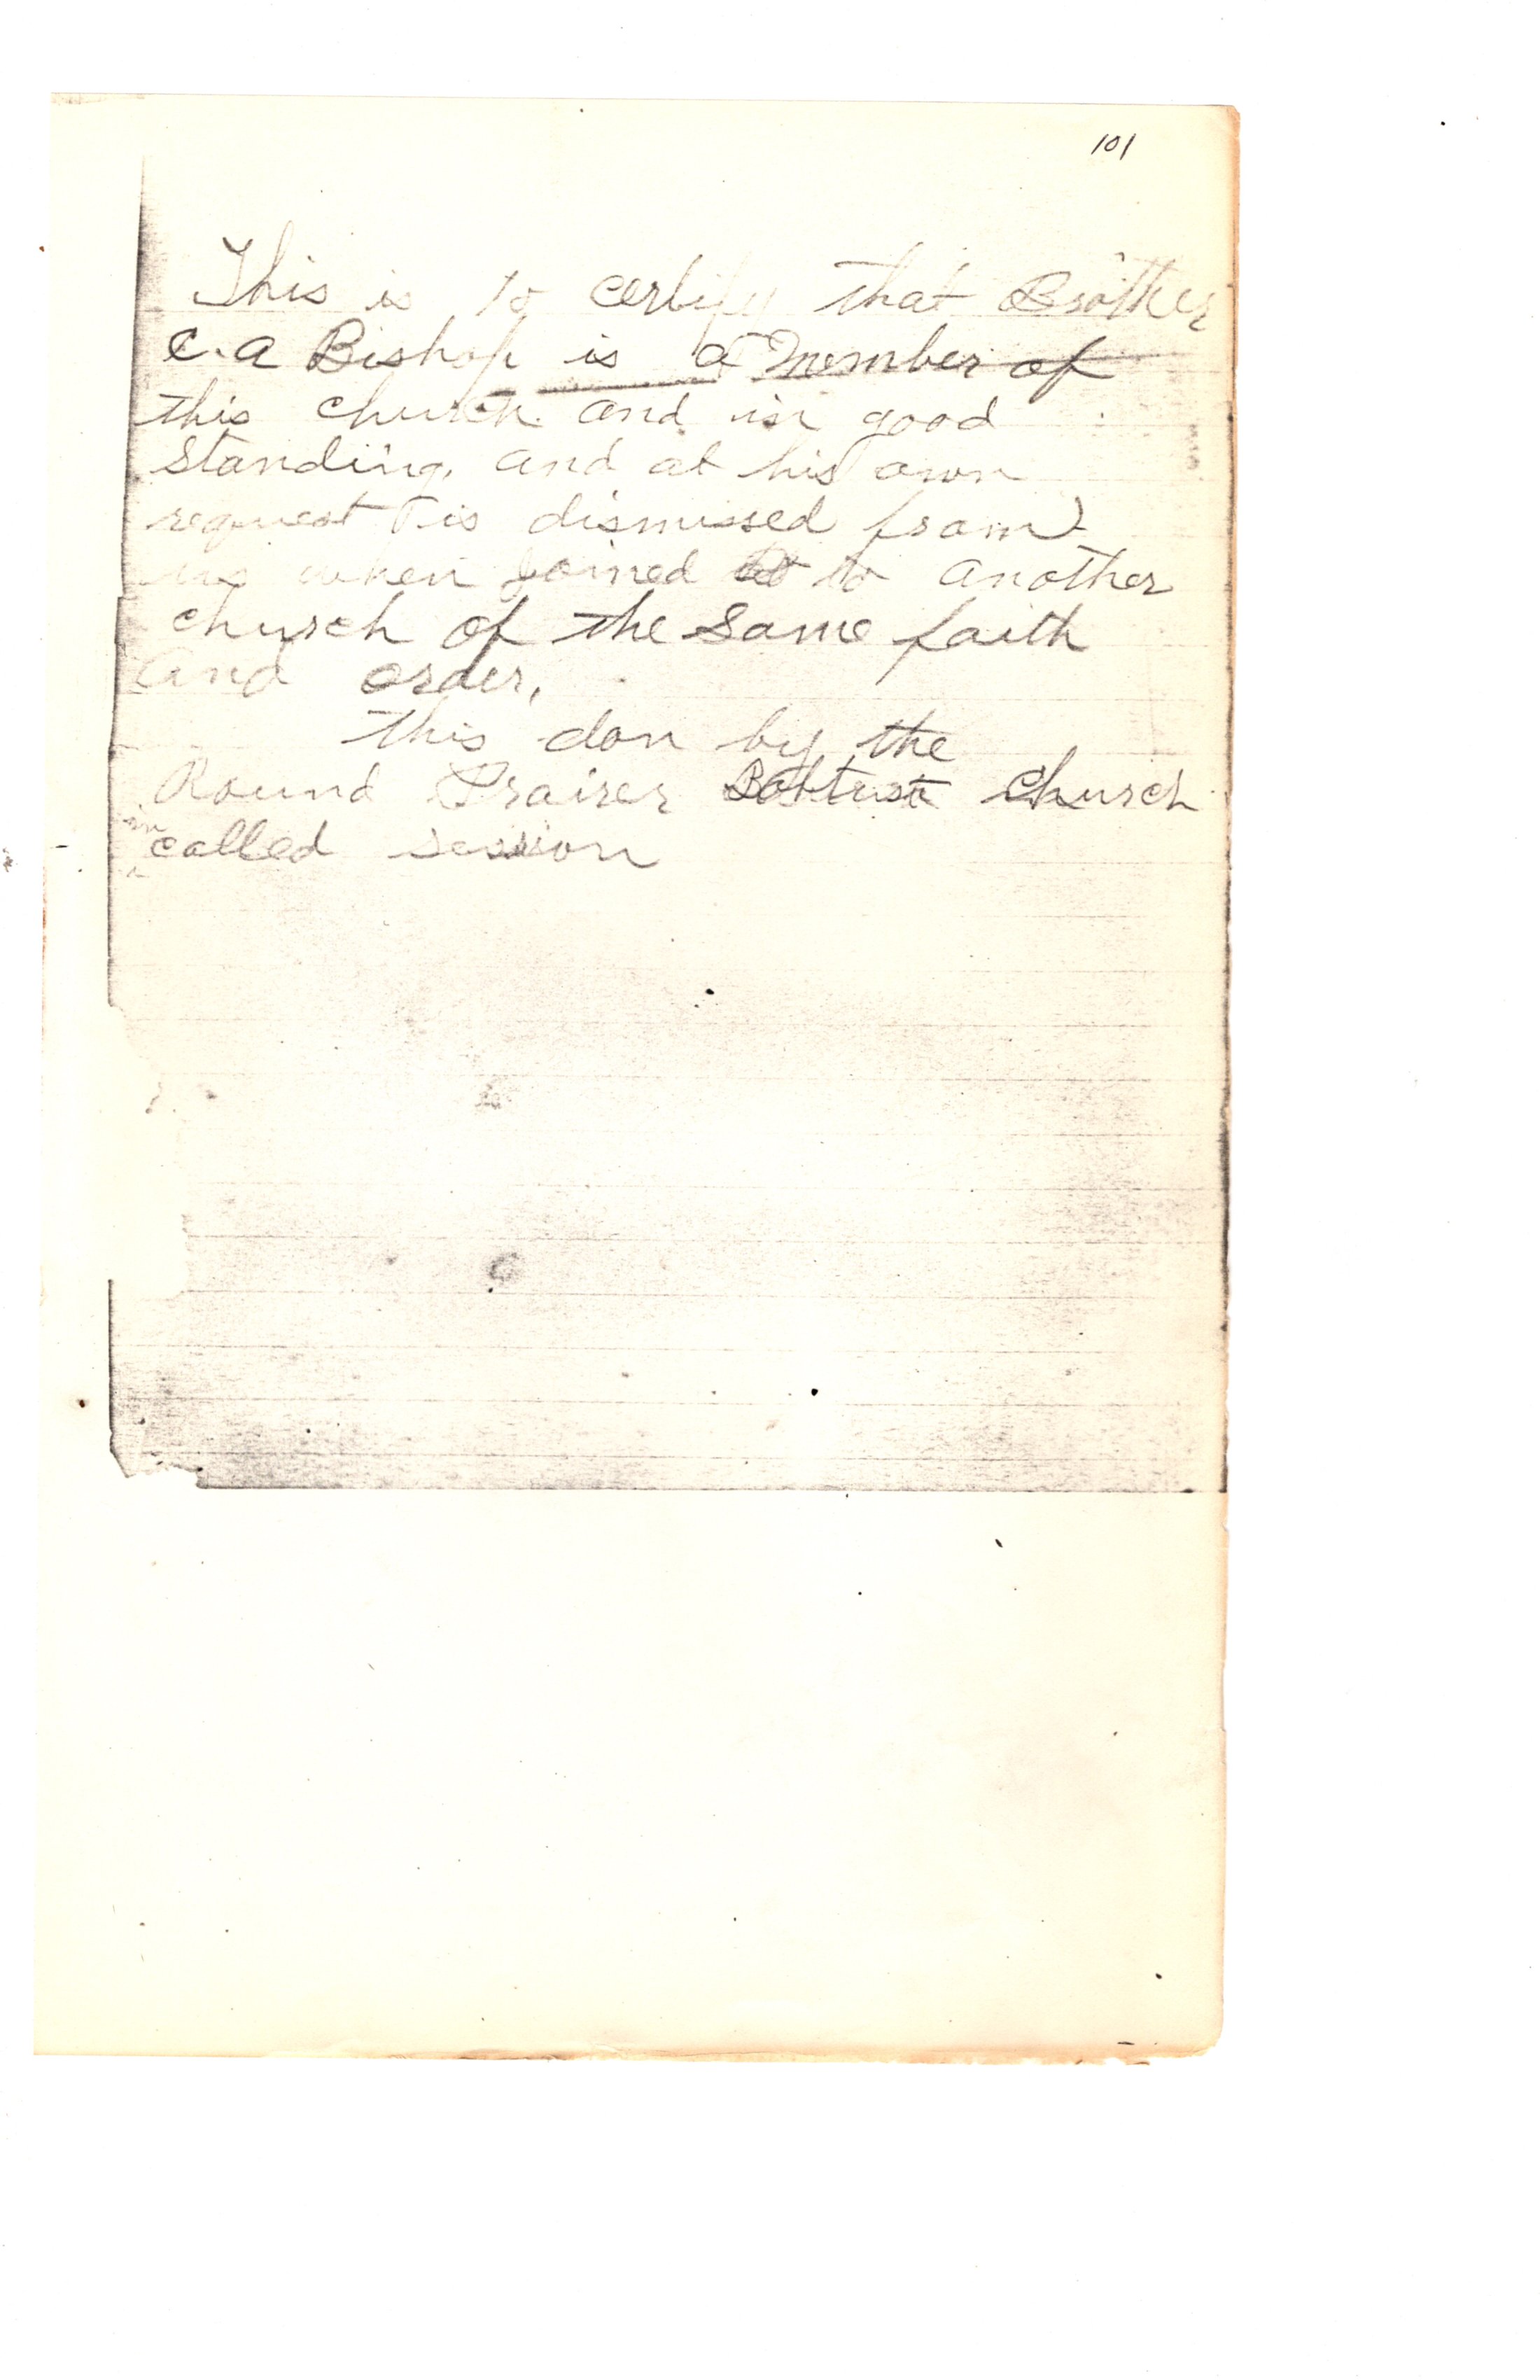 101
This is to certify that Brother
C. a Bishop is a Member of
this church and in good
Standing, and at his own
request is dismissed from
us when joined to another
church of the Same faith
and order,
this don by the
Round Prairer Babtust Church
in called session